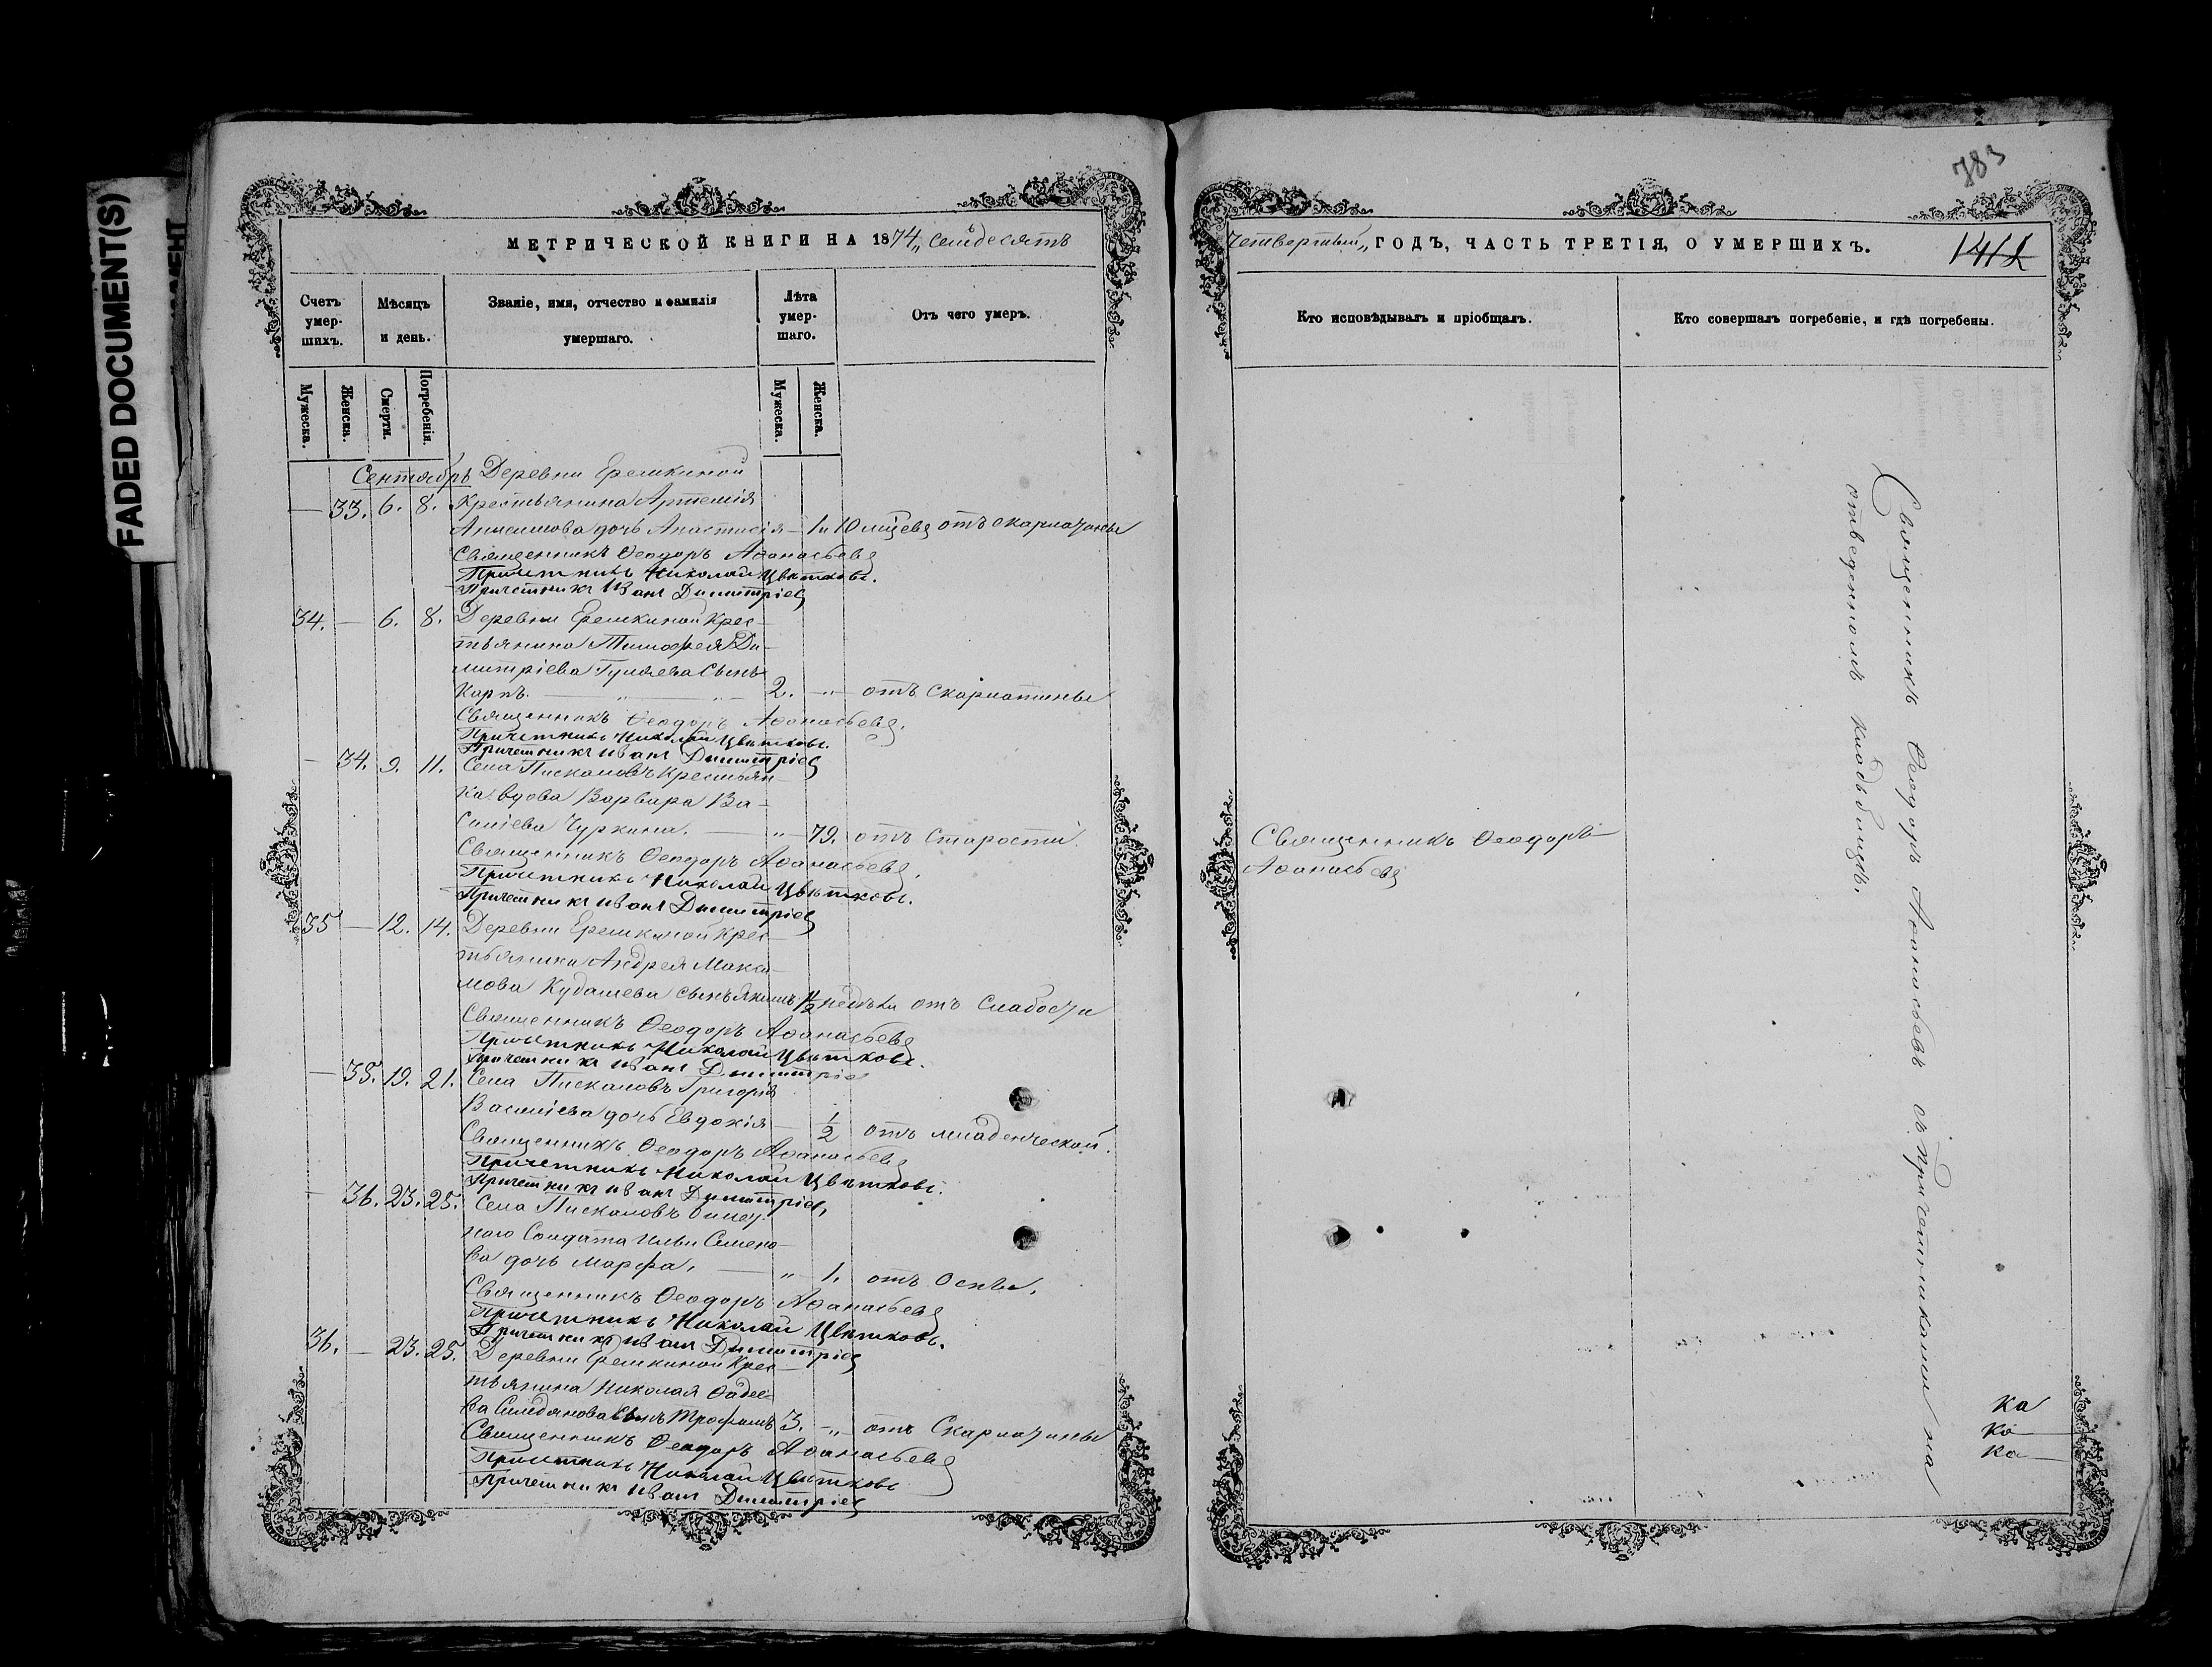 FADED DOCUMENT(S)
МЕТРИЧЕСКОЙ КНИГИ НА 1874 „ Семдесятъ
Счетъ умер-шихъ.
Мѣсяцъ и день.
Званіе, имя, отчество и фамилія умершаго.
Лѣта умер-шаго.
Отъ чего умеръ.
Мужеска.
Женска.
Смерти.
Погребенія.
Мужеска.
Женска.
Сентябрь Деревни Еремкиной
— 33. 6. 8. Крестьянина Артемія
Анисимова дочь Анастасія — 1 и 10 мѣсяцев отъ скарлатины
Священникъ Ѳеодоръ Аѳанасьевъ
Причетникъ Николай Цвѣтковъ.
Причетникъ Иванъ Димитріев
34. — 6. 8. Деревни Еремкиной Крес-
тьянина Тимофея Ди-
митріева Гуляева Сынъ
Карпъ. — „ — 2. — „ — отъ Скарлатины
Священникъ Ѳеодоръ Аѳанасьевъ.
Причетникъ Николай Цвѣтковъ.
Причетникъ Иванъ Димитріев
— 34. 9. 11. Села Пискаловъ Крестьян-
ка вдова Варвара Ва-
силіева Чуркина. — „ — 79. отъ Старости.
Священникъ Ѳеодоръ Аѳанасьевъ.
Причетникъ Николай Цвѣтковъ.
Причетникъ Иванъ Димитріев
35 — 12. 14. Деревни Еремкиной Крес-
тьянина Андрея Макси-
мова Кудашева сынъ Якимъ недѣли отъ Слабости
Священникъ Ѳеодоръ Аѳанасьевъ
Причетникъ Николай Цвѣтковъ.
Причетникъ Иванъ Димитріев
— 35. 19. 21. Села Пискаловъ Григорія
Василіева дочь Евдокія — 1/2 отъ младенческой.
Священникъ Ѳеодоръ Аѳанасьевъ
Причетникъ Николай Цвѣтковъ.
Причетникъ Иванъ Димитріев,
— 36. 23. 25. Села Пискаловъ
наго Солдата Ильи Семено-
ва дочь Марфа, — „ — 1. отъ Оспы,
Священникъ Ѳеодоръ Аѳанасьевъ
Причетникъ Николай Цвѣтковъ.
Причетникъ Иванъ Димитріев
36. — 23. 25. Деревни Еремкиной Крес-
тьянина Николая Фадее-
ва Сынъ Трофимъ 3. — „ — отъ Скарлатины
Священникъ Ѳеодоръ Аѳанасьевъ
Причетникъ Николай Цвѣтковъ
Причетникъ Иванъ Димитріев
783
Четвертый „ ГОДЪ, ЧАСТЬ ТРЕТІЯ, О УМЕРШИХЪ.
Кто исповѣдывалъ и пріобщалъ.
Кто совершалъ погребеніе, и гдѣ погребены.
Священникъ Ѳеодоръ
Аѳанасьевъ
Священникъ Ѳеодоръ Аѳанасьевъ съ причетниками на
отведенномъ кладбищѣ.
ка
ка
ка